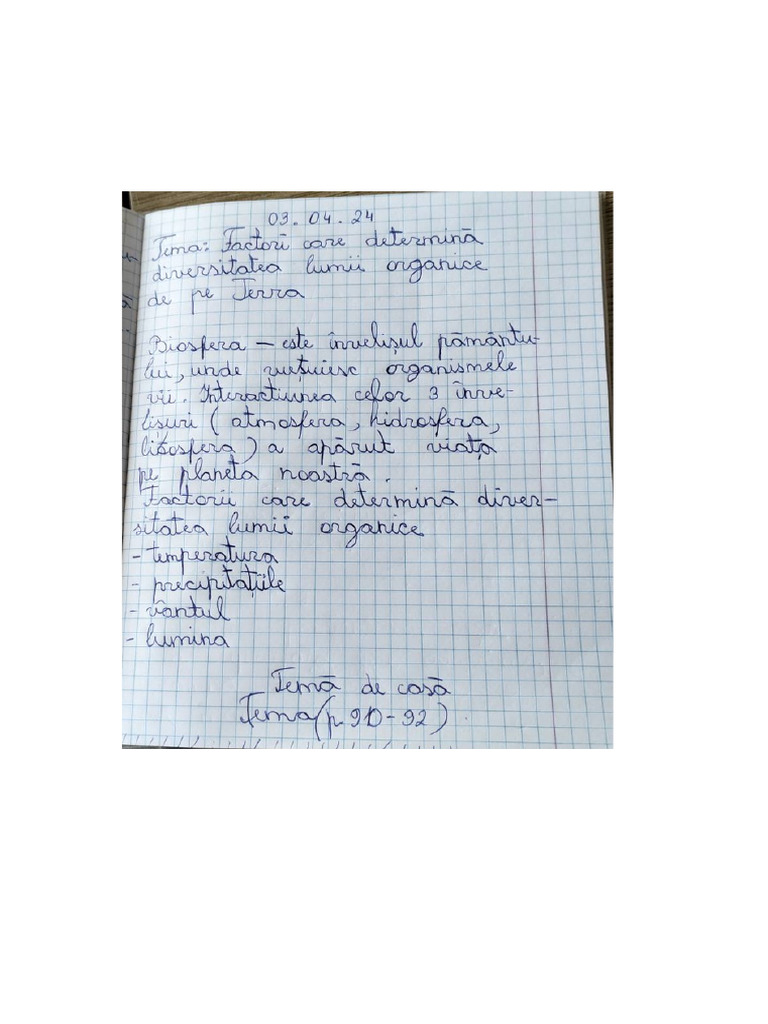 03.04.24
Tema: Factori care determină
diversitatea lumii organice
de pe Terra
Biosfera – este învelișul pământu-
lui, unde viețuiesc organismele
vii. Interacțiunea celor 3 înve-
lișuri (atmosfera, hidrosfera,
litosfera) a apărut viața
pe planeta noastră.
Factorii care determină diver-
sitatea lumii organice
- temperatura
- precipitațiile
- vântul
- lumina
Temă de casă
Tema (p. 90-92)